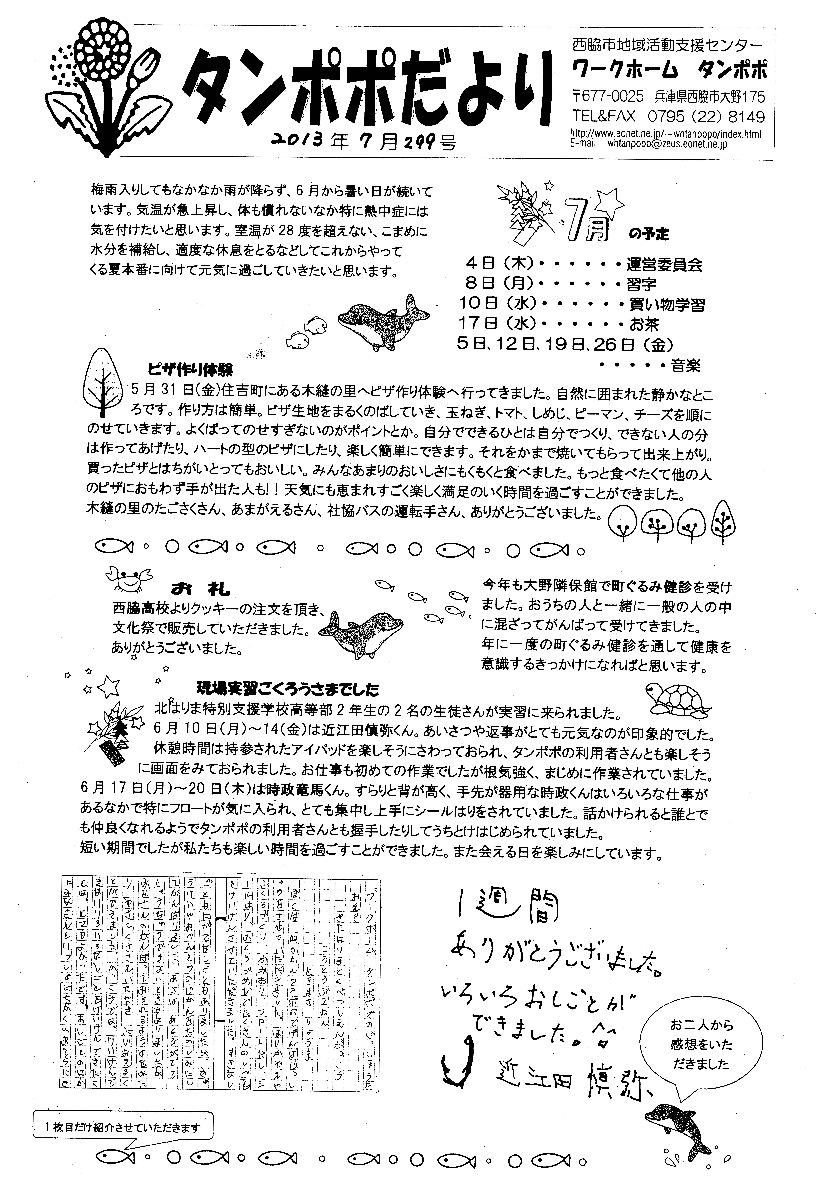 タンポポだより
2013年7月299号
西脇市地域活動支援センター
ワークホーム タンポポ
〒677-0025 兵庫県西脇市大野175
TEL&FAX 0795 (22) 8149
http://www.eonet.ne.jp/~whtanpopo/index.html
E-mail whtanpopo@zeus.eonet.ne.jp
梅雨入りしてもなかなか雨が降らず、6月から暑い日が続いて
います。気温が急上昇し、体も慣れないなか特に熱中症には
気を付けたいと思います。室温が28度を超えない、こまめに
水分を補給し、適度な休息をとるなどしてこれからやって
くる夏本番に向けて元気に過ごしていきたいと思います。
7月の予定
4日(木)・・・・・・運営委員会
8日(月)・・・・・・習字
10日(水)・・・・・・買い物学習
17日(水)・・・・・・お茶
5日、12日、19日、26日(金)
・・・・・音楽
ピザ作り体験
5月31日(金)住吉町にある木縫の里へピザ作り体験へ行ってきました。自然に囲まれた静かなとこ
ろです。作り方は簡単。ピザ生地をまるくのばしていき、玉ねぎ、トマト、しめじ、ピーマン、チーズを順に
のせていきます。よくばってのせすぎないのがポイントとか。自分でできるひとは自分でつくり、できない人の分
は作ってあげたり、ハートの型のピザにしたり、楽しく簡単にできます。それをかまで焼いてもらって出来上がり。
買ったピザとはちがいとってもおいしい。みんなあまりのおいしさにもくもくと食べました。もっと食べたくて他の人
のピザにおもわず手が出た人も!!天気にも恵まれすごく楽しく満足のいく時間を過ごすことができました。
木縫の里のたごさくさん、あまがえるさん、社協バスの運転手さん、ありがとうございました。
お 礼
西脇高校よりクッキーの注文を頂き、
文化祭で販売していただきました。
ありがとうございました。
今年も大野隣保館で町ぐるみ健診を受け
ました。おうちの人と一緒に一般の人の中
に混ざってがんばって受けてきました。
年に一度の町ぐるみ健診を通して健康を
意識するきっかけになればと思います。
現場実習ごくろうさまでした
北はりま特別支援学校高等部2年生の2名の生徒さんが実習に来られました。
6月10日(月)~14(金)は近江田慎弥くん。あいさつや返事がとても元気なのが印象的でした。
休憩時間は持参されたアイパッドを楽しそうにさわっておられ、タンポポの利用者さんとも楽しそう
に画面をみておられました。お仕事も初めての作業でしたが根気強く、まじめに作業されていました。
6月17日(月)~20日(木)は時政竜馬くん。すらりと背が高く、手先が器用な時政くんはいろいろな仕事が
あるなかで特にフロートが気に入られ、とても集中し上手にシールはりをされていました。話かけられると誰とで
も仲良くなれるようでタンポポの利用者さんとも握手したりしてうちとけはじめられていました。
短い期間でしたが私たちも楽しい時間を過ごすことができました。また会える日を楽しみにしています。
1週間
ありがとうございました。
いろいろおしごとが
できました。
近江田 慎弥
お二人から
感想をいた
だきました
1枚目だけ紹介させていただきます